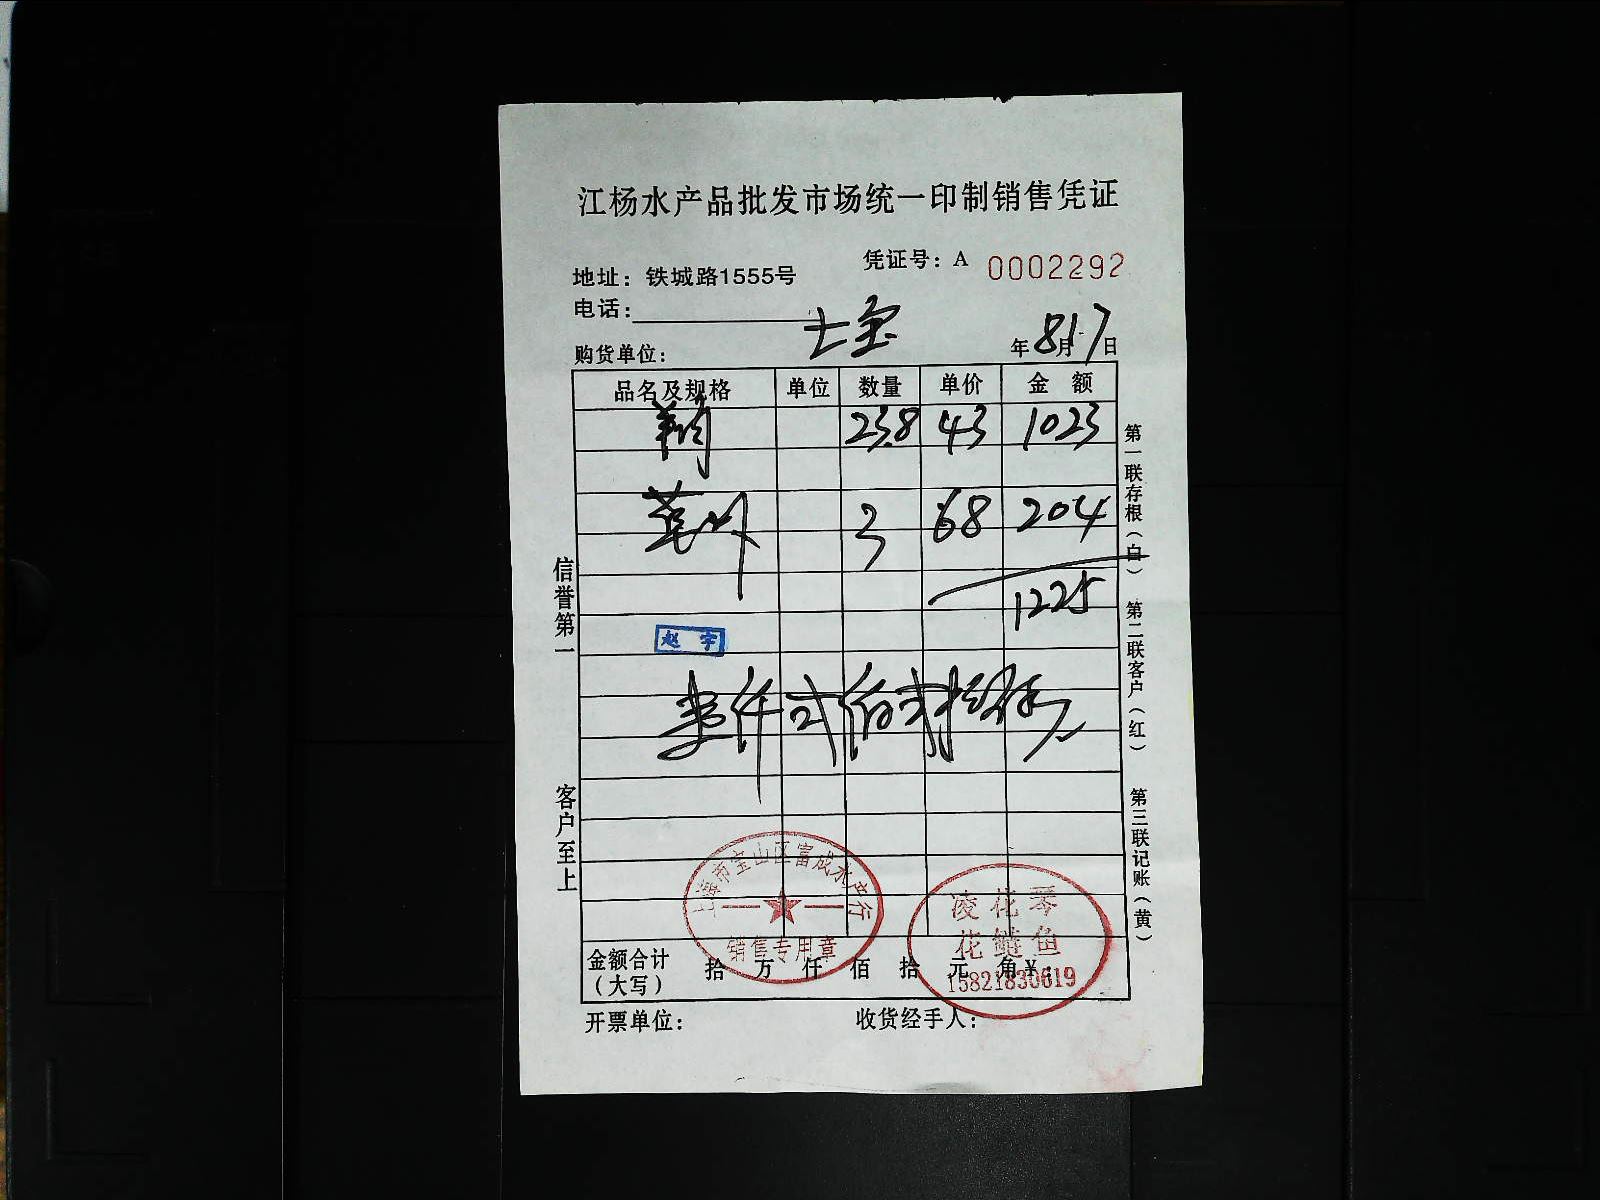 江杨水产品批发市场统一印制销售凭证
凭证号：A 0002292
地址：铁城路1555号
电话：
购货单位：七宝 年8月17日
品名及规格 单位 数量 单价 金 额
23.8 43 1023
3 68 204
1225
赵 宇
壹仟弍佰弍拾伍元
上海市宝山区富成水产行
销售专用章
凌花琴
花鲢鱼
15821830619
金额合计
（大写） 拾 万 仟 佰 拾 元 角 ¥：
开票单位： 收货经手人：
信誉第一
客户至上
第一联存根（白）
第二联客户（红）
第三联记账（黄）